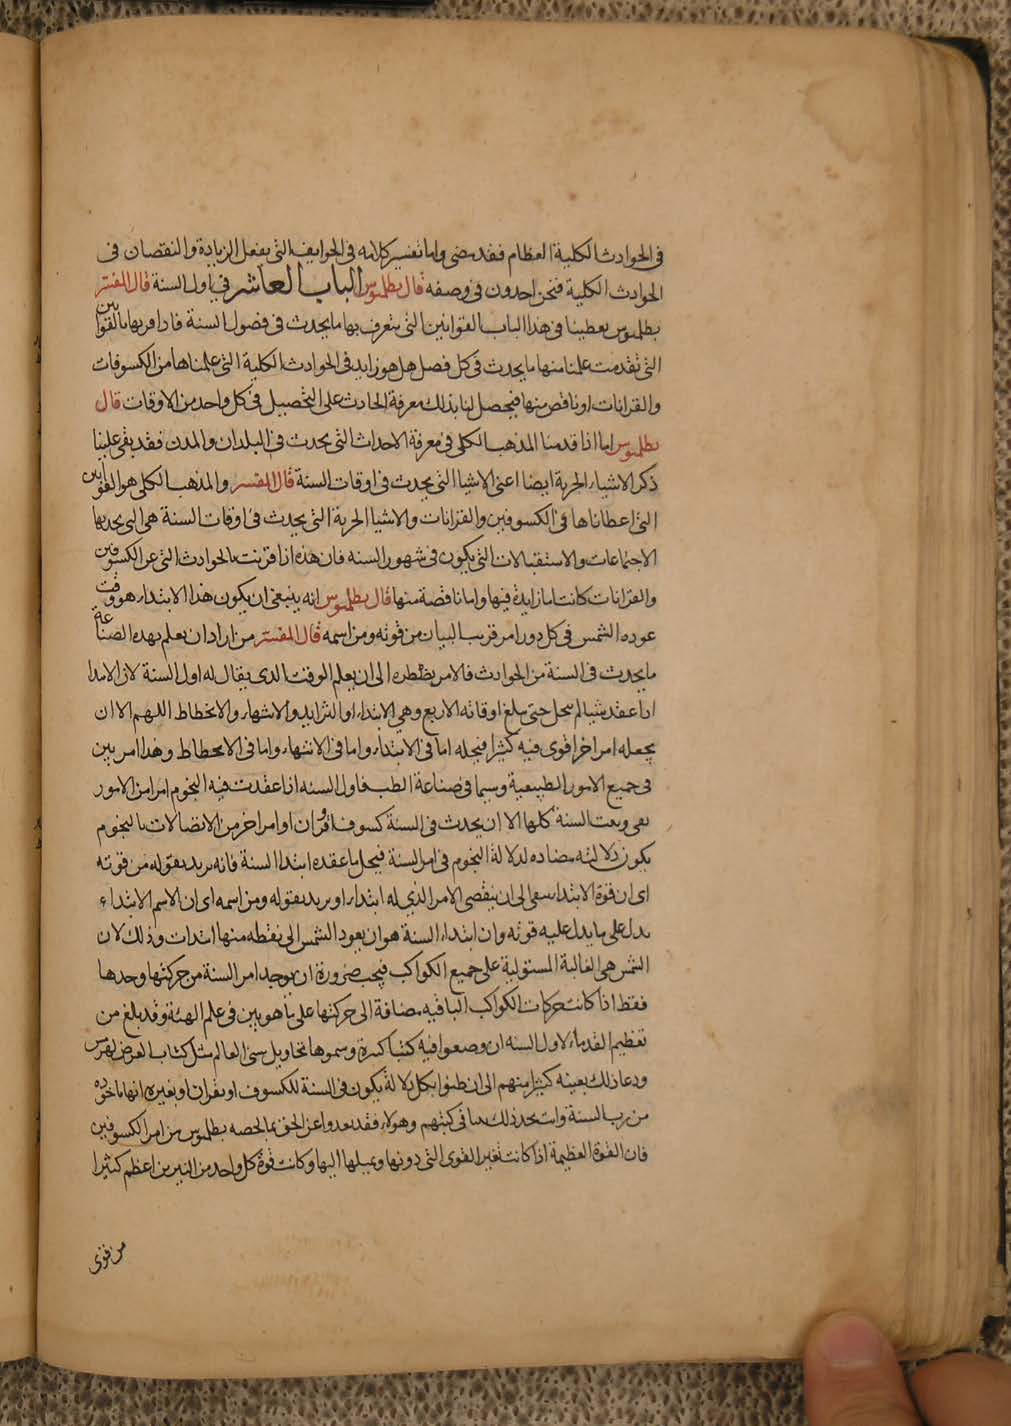 في الحوادث الكلية العظام فقد مضى واما تفسير كلامه في الحوايف التي يفعل الزيادة والنقصان في
الحوادث الكلية فنحن احدون في وصفه قال بطلميوس الباب العاشر في اول السنة قال المفسر
بطلميوس يعطينا في هذا الباب القوانين التي يتعرف بها ما يحدث في فصول السنة فاذا قربها بالقوانين
التي تقدمت علمنا منها ما يحدث في كل فصل هل هو زايد في الحوادث الكلية التي علمناها من الكسوفات
والقرانات او ناقص منها فيحصل لنا بذلك معرفة الحادث على التحصيل في كل واحد من الاوقات قال
بطلميوس اما اذا قدمنا المذهب الكلي في معرفة الاحداث التي يحدث في البلدان والمدن فقد بقي علينا
ذكر الاشياء الجزية ايضا اعني الاشيا التي يحدث في اوقات السنة قال المفسر والمذهب الكلي هو القوانين
التي اعطاناها في الكسوفين والقرانات والاشيا الجزية التي يحدث في اوقات السنة هي التي يحدثها
الاجتماعات والاستقبالات التي يكون في شهور السنه فان هذه اذا قرنت بالحوادث التي عن الكسوفين
والقرانات كانت اما زايدة فيها واما ناقصة منها قال بطلميوس انه ينبغي ان يكون هذا الابتداء هو وقت
عوده الشمس في كل دور امر قريب البيان من قوته ومن اسمه قال المفسر من اراد ان يعلم بهذه الصناعة
ما يحدث في السنة من الحوادث فالامر يضطره الى ان يعلم الوقت الذي يقال له اول السنة لان الابتدا
اذا عقد شيا لم ينحل حتى يبلغ اوقاته الاربع وهي الابتداء او التزايد والانتهاء والانحطاط اللهم الا ان
يحعله امر اخر اقوى فيه كثيرا فيحله اما في الابتداء واما في الانتهاء واما في الانحطاط وهذا امر بين
في جميع الامور الطبيعية وسيما في صناعة الطب فاول السنه اذا عقدت فيه النجوم امرا من الامور
بقي وبعت السنة كلها الا ان يحدث في السنة كسوف او قران او امر اخر من الاتصالات بالنجوم
يكون دلالته مضاده لدلالة النجوم في امر السنة فيحل ما عقده ابتدا السنة فانه يريد بقوله من قوته
اى ان قوة الابتدا سعى الى ان ينقضي الامر الذي له ابتداء او يريد بقوله ومن اسمه اى ان الاسم الابتداء
يدل على ما يدل عليه قوته وان ابتداء السنة هو ان يعود الشمس الى نقطه منها ابتدات وذلك لان
الشمس هي الغالبة المستولية على جميع الكواكب فيجب ضرورة ان يوجد امر السنة من حركتها وحدها
فقط اذا كانت حركات الكواكب الباقيه مضافة الى حركتها على ما هو بين في علم الهئة وقد بلغ من
تعظيم القدماء لاول السنه ان وضعوا فيه كتبا كثيرة وسموها تحاويل سني العالم مثل كتاب العرض لهرمس
ودعا ذلك بعينه كثيرا منهم الى ان ظنوا بكل دلالة يكون في السنة للكسوف او بقران او بغيره انها ماخوذه
من رب السنة وانت تجد ذلك بينا في كتبهم وهولاء فقد بعدوا عن الحق بما لخصه بطلميوس من امر الكسوفين
فان القوة العظيمة اذا كانت تغير القوى التي دونها ويميلها اليها وكانت قوة كل واحد من النيرين اعظم كثيرا
من قوى